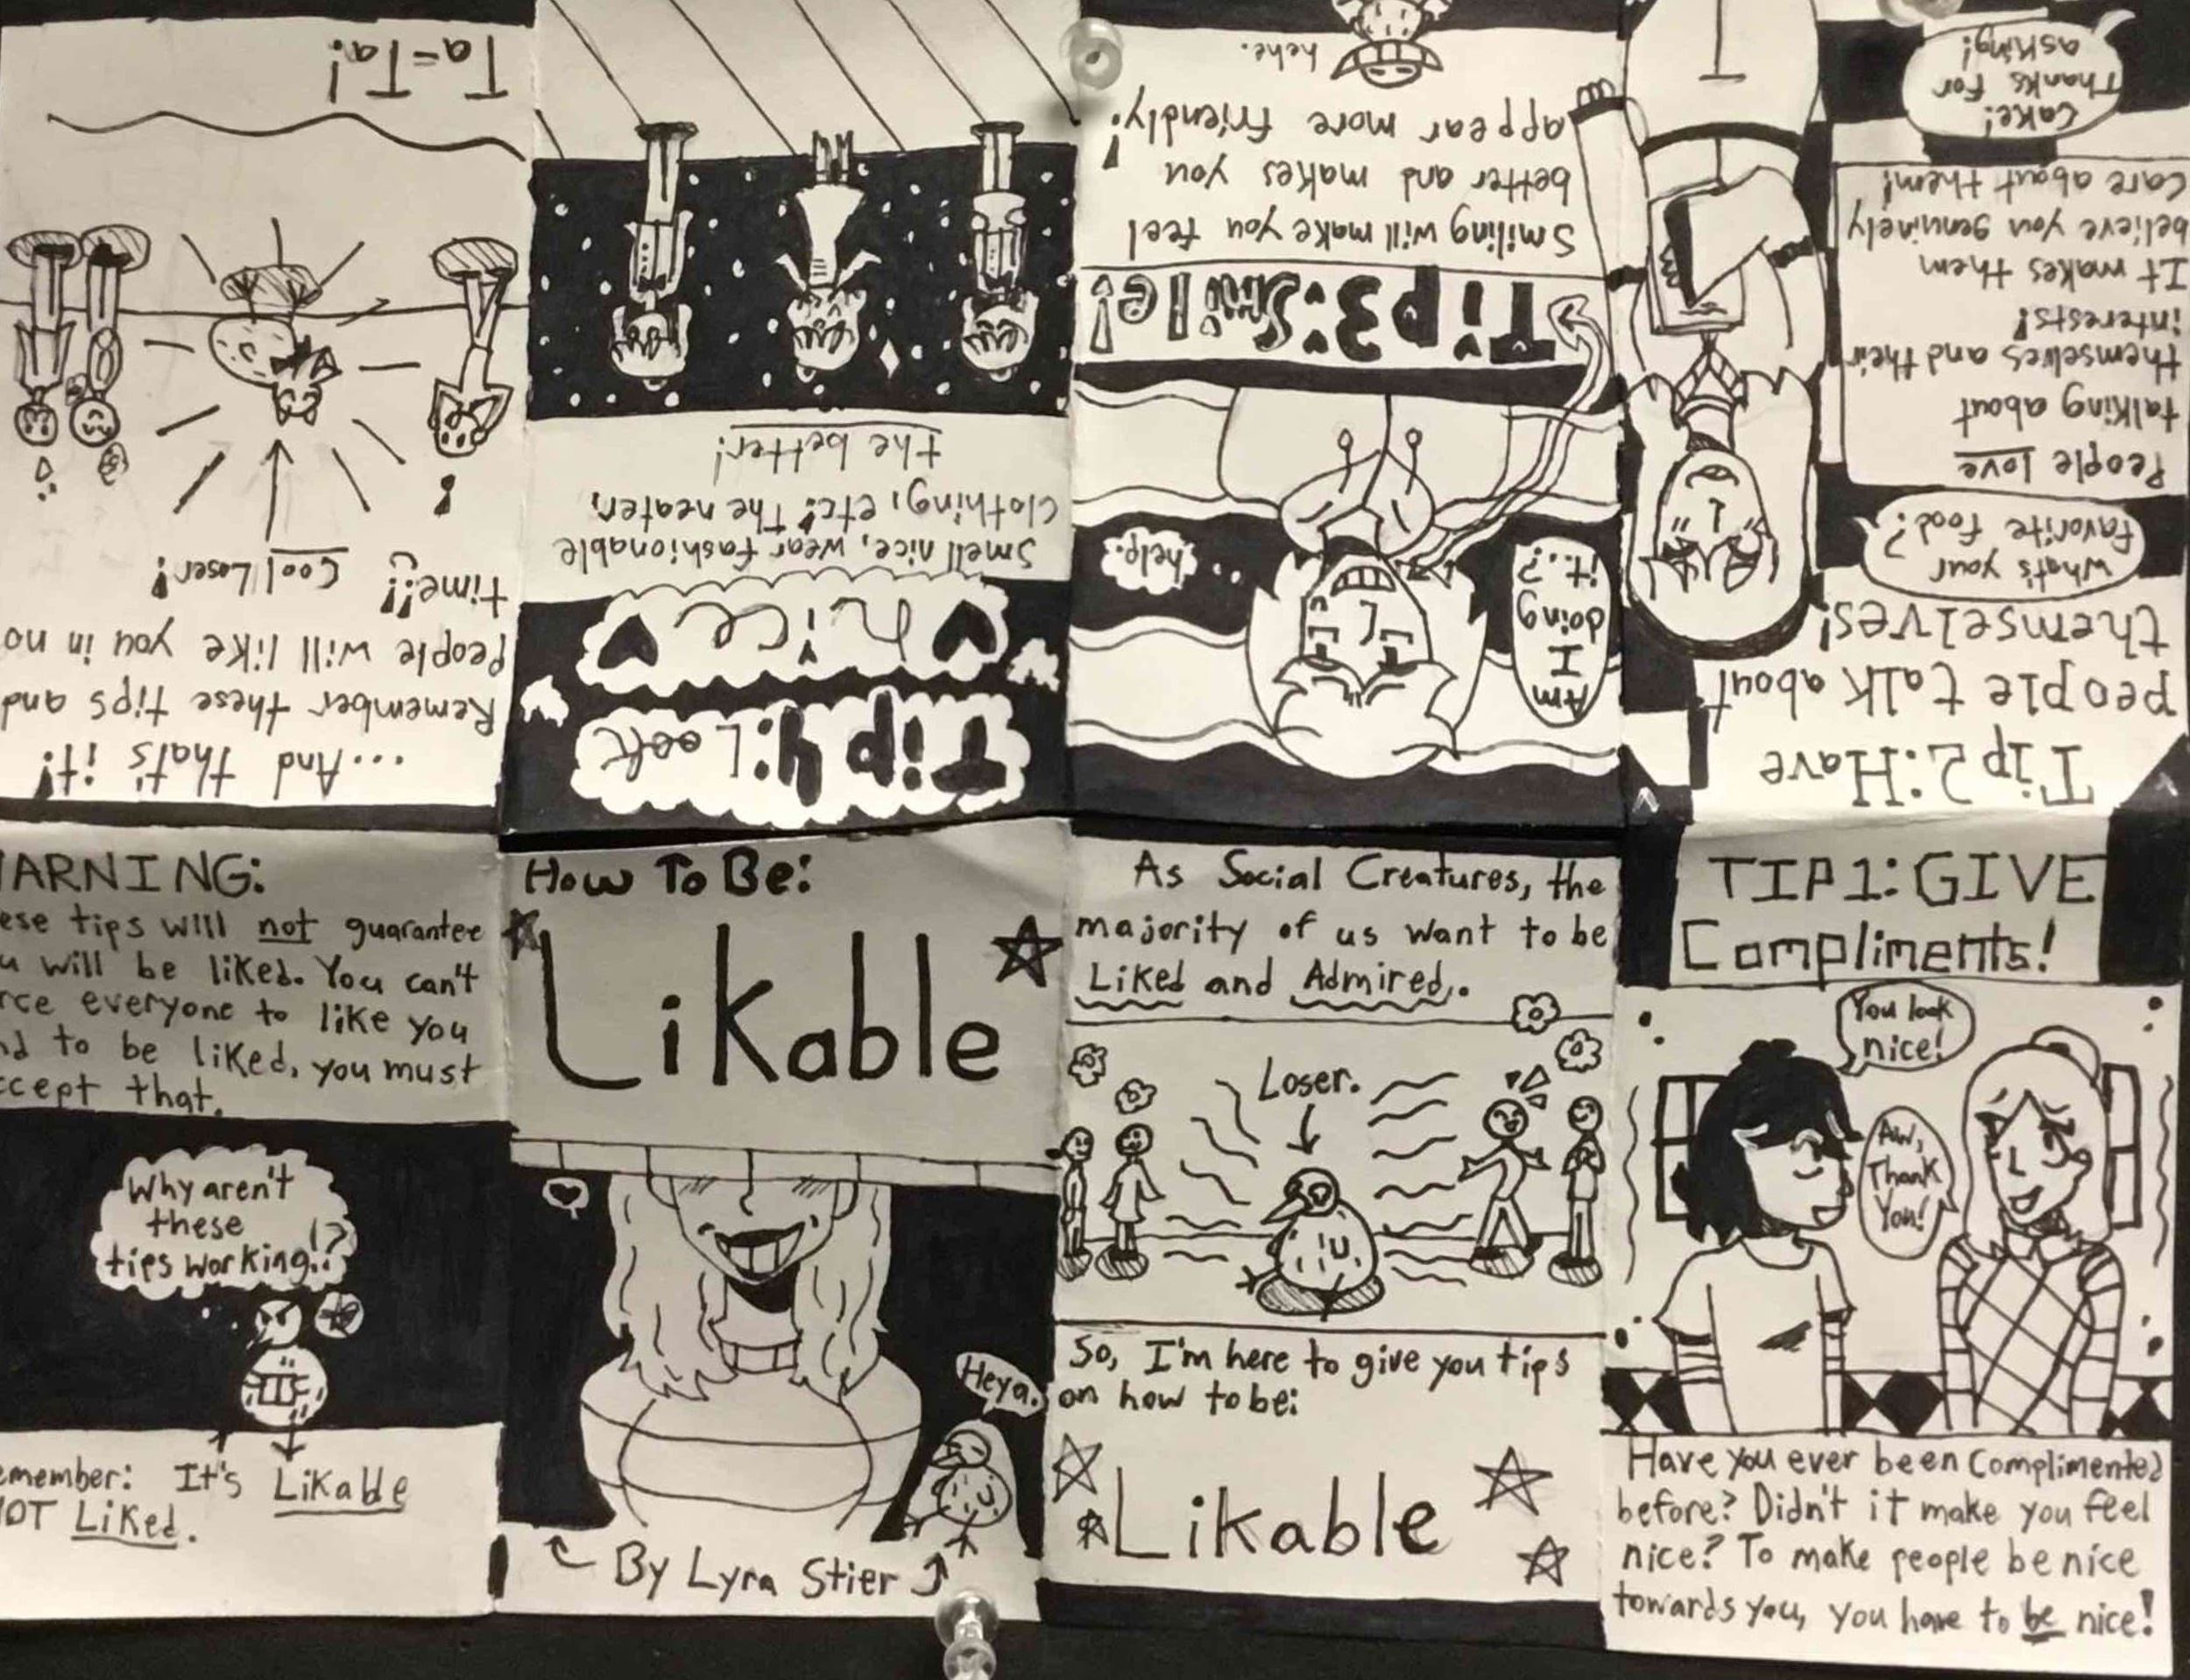 How To Be:
Likable
Heya.
By Lyra Stier
As Social Creatures, the
majority of us want to be
Liked and Admired.
Loser.
So, I'm here to give you tips
on how to be:
Likable
TIP 1: GIVE
Compliments!
You look
nice!
Aw,
Thank
You!
Have you ever been complimented
before? Didn't it make you feel
nice? To make people be nice
towards you, you have to be nice!
Tip 2: Have
people talk about
themselves!
What's your
favorite food?
People love
talking about
themselves and their
interests!
It makes them
believe you genuinely
care about them!
Cake!
Thanks for
asking!
Am
I
doing
it..?
help.
Tip 3: Smile!
Smiling will make you feel
better and makes you
appear more friendly!
hehe.
Tip 4: Look
nice
Smell nice, wear fashionable
clothing, etc! The neater,
the better!
...And that's it!
Remember these tips and
people will like you in no
time!!
Cool Loser!
Ta-Ta!
ARNING:
ese tips will not guarantee
u will be liked. You can't
rce everyone to like you
nd to be liked, you must
ccept that.
Why aren't
these
tips working!?
emember: It's Likable
NOT Liked.